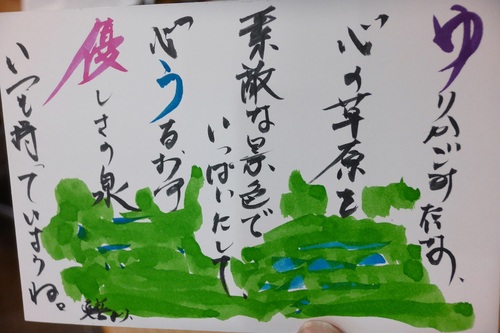 ゆりかごみたいな、
心の草原を
素敵な景色で
いっぱいにして、
心うるおす
優しさの泉
いつも持っていようね。